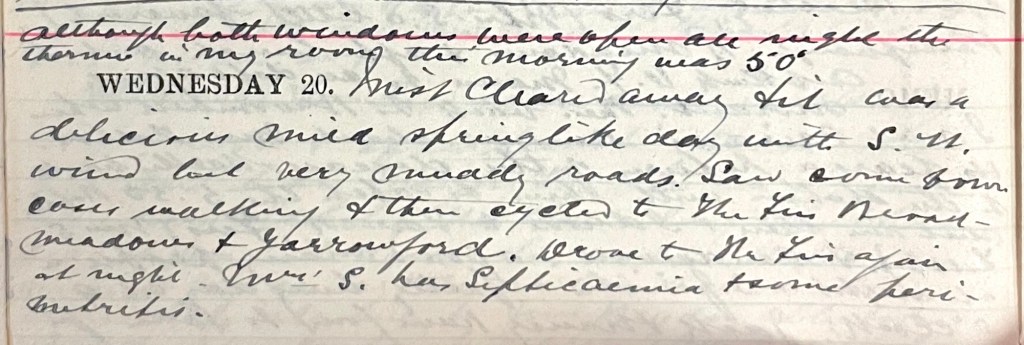 although both windows were open all night the
thermo in my room this morning was 50°
WEDNESDAY 20. Mist Cleared away & it was a
delicious mild springlike day with S. W.
wind but very muddy roads. Saw some town
cases walking & then cycled to The Firs Broad-
meadows & Yarrowford. Drove to The Firs again
at night. Mrs S. has Septicaemia & some peri-
metritis.